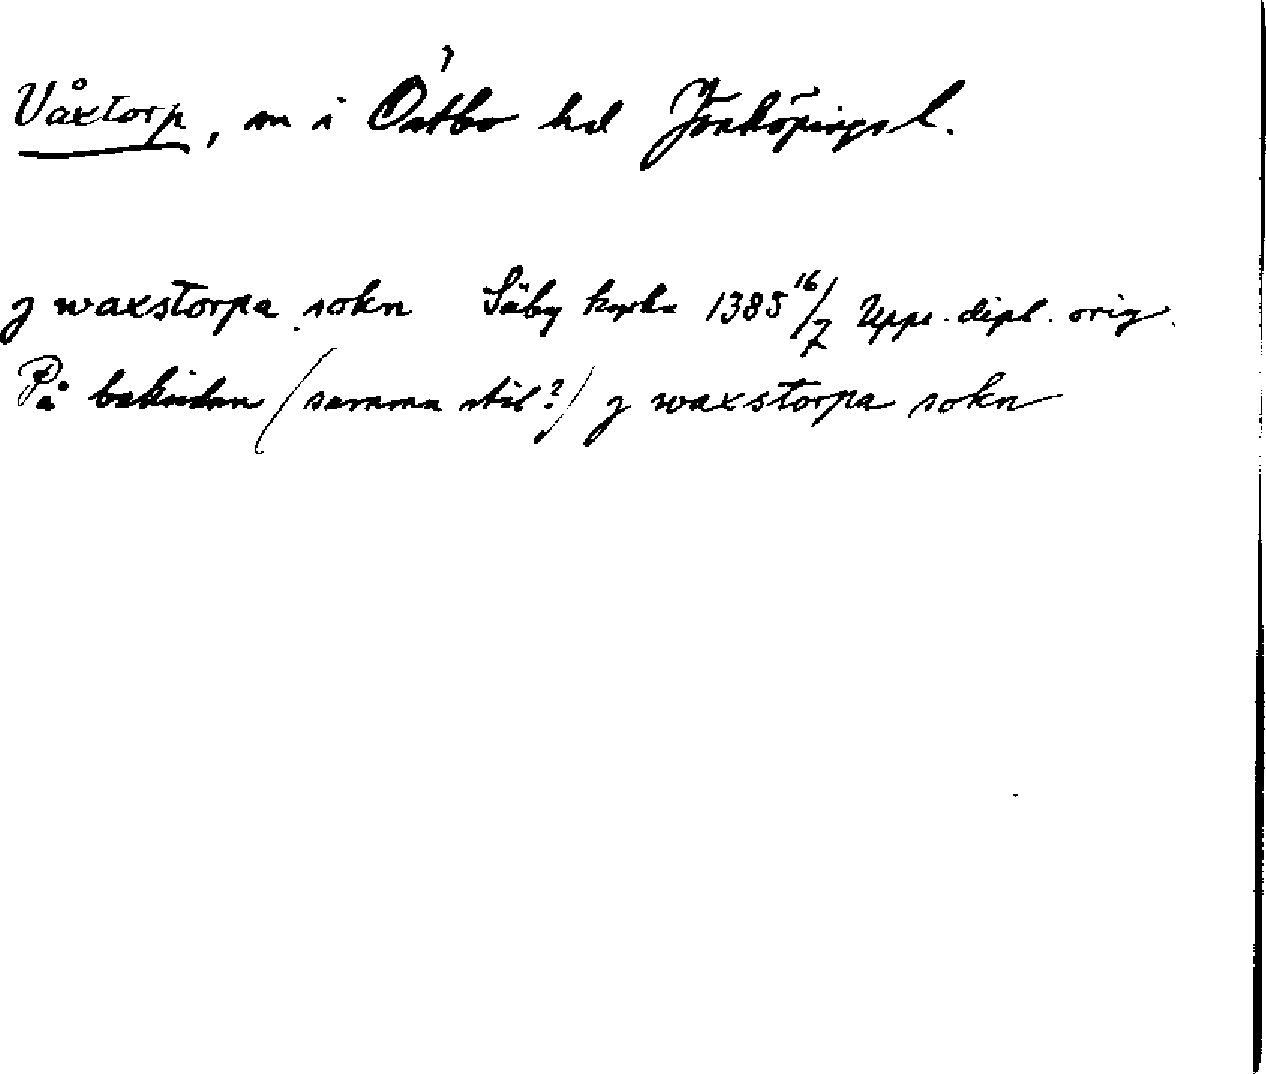 Våxtorp, sn i Östbo hd Jönköpings l.
j waxstorpa sokn Säby kyrka 1385 16/7 Upps. dipl. orig.
På baksidan (samma stil?) j waxstorpa sokn